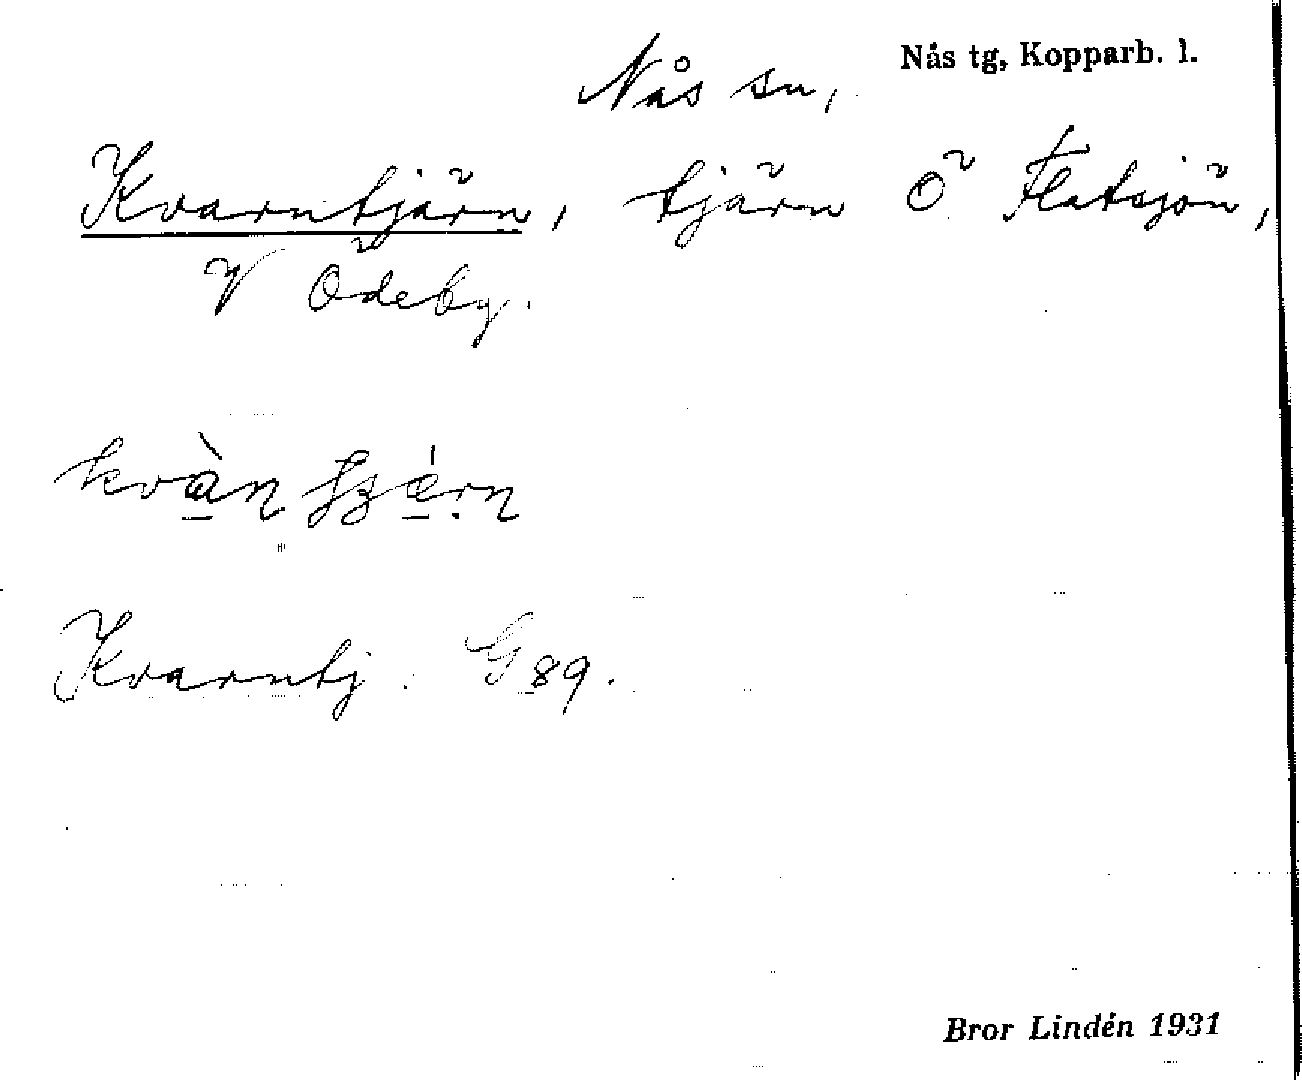 Nås tg, Kopparb. l.
Nås sn,
Kvarntjärn, tjärn Ö Flatsjön,
V Ödeby.
Kvarntj. G 89.
Bror Lindén 1931